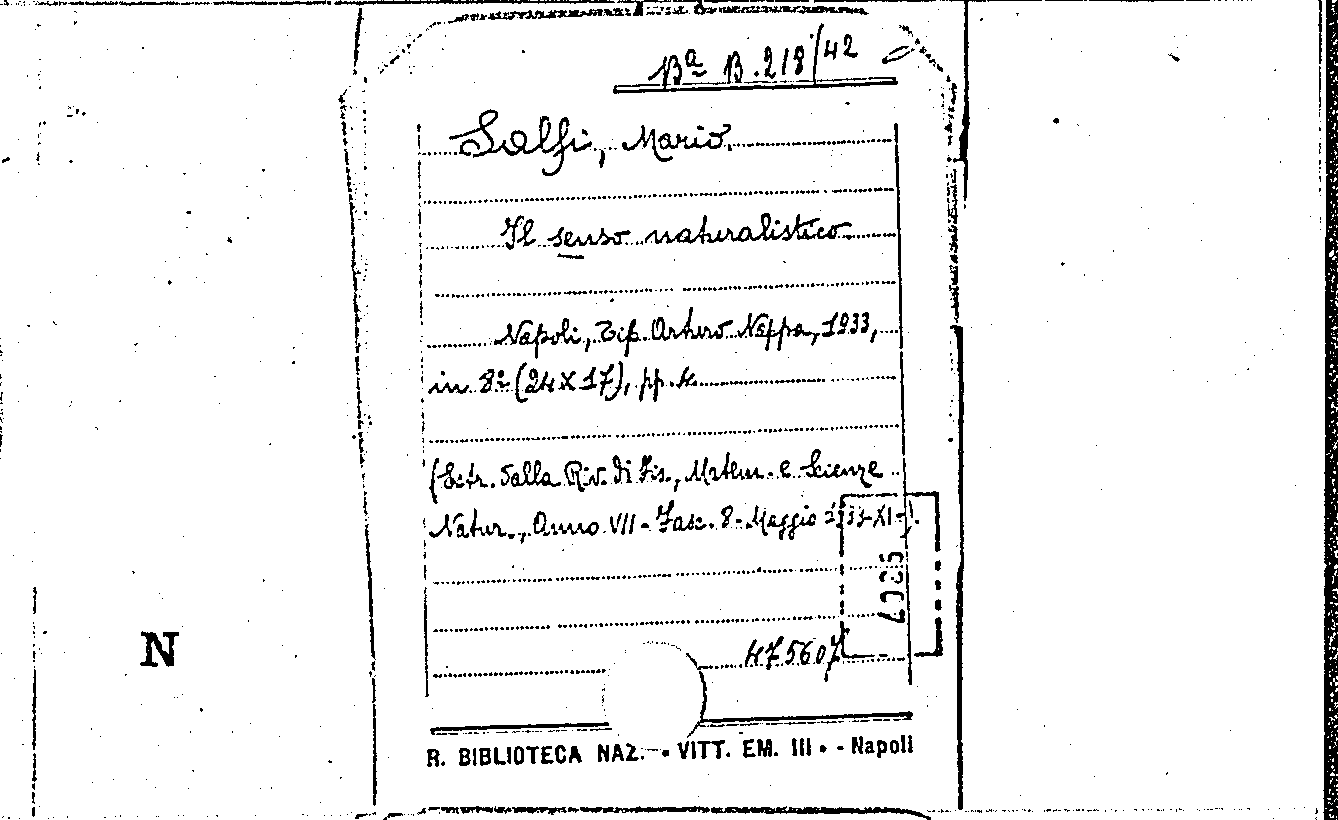 Bª B. 218/42
Salfi, Mario.
Il senso naturalistico
Napoli, Tip. Arturo Nappa, 1933,
in 8º (24X17), pp. 4.
(Estr. dalla Riv. di Fis., Matem. e Scienze
Natur., Anno VII - Fasc. 8 - Maggio 1933-XI-).
475607
N
R. BIBLIOTECA NAZ. - • VITT. EM. III • - Napoli